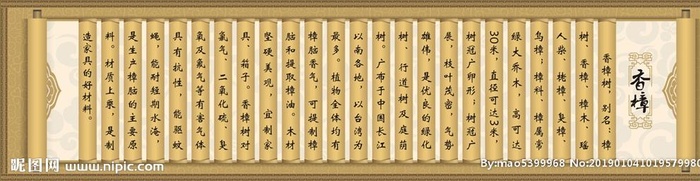 香樟
香樟树，别名：樟
树、香樟、樟木、瑶
人柴、栳樟、臭樟、
乌樟；樟科，樟属常
绿大乔木，高可达
30米，直径可达3米，
树冠广卵形；树冠广
展，枝叶茂密，气势
雄伟，是优良的绿化
树、行道树及庭荫
树。广布于中国长江
以南各地，以台湾为
最多。植物全体均有
樟脑香气，可提制樟
脑和提取樟油。木材
坚硬美观，宜制家
具、箱子。香樟树对
氯气、二氧化硫、臭
氧及氟气等有害气体
具有抗性，能驱蚊
蝇，能耐短期水淹，
是生产樟脑的主要原
料。材质上乘，是制
造家具的好材料。
昵图网 www.nipic.com
By:mao5399968 No:20190104101957998